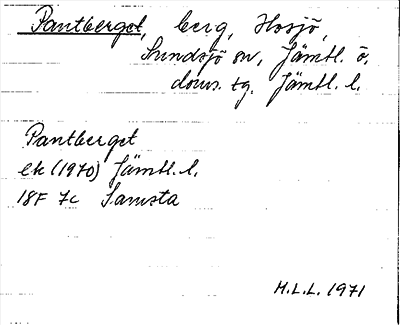 Pantberget, berg, Hosjö,
Sundsjö sn, Jämtl. ö.
doms. tg. Jämtl. l.
Pantberget
ek (1970) Jämtl. l.
18F 7c Samsta
H.L.L. 1971